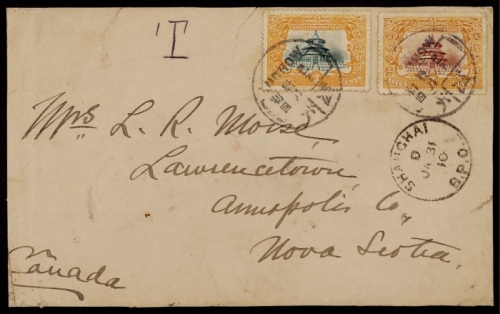 T
Mrs L. R. Morse
Lawrencetown
Annapolis Co,
Nova Scotia.
Canada
SHANGHAI
D
JA 31
10
B.P.O.